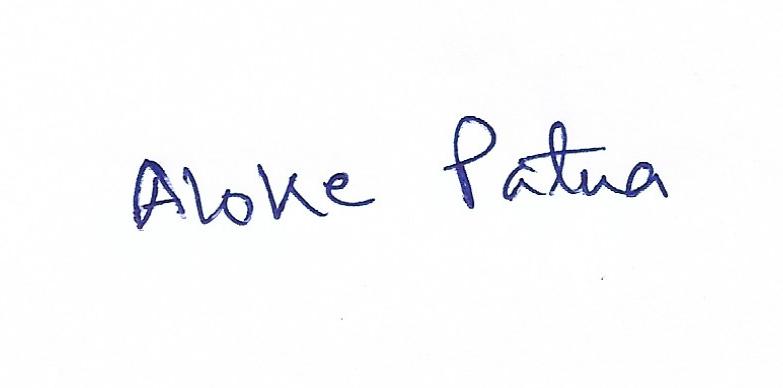 Aloke Patua